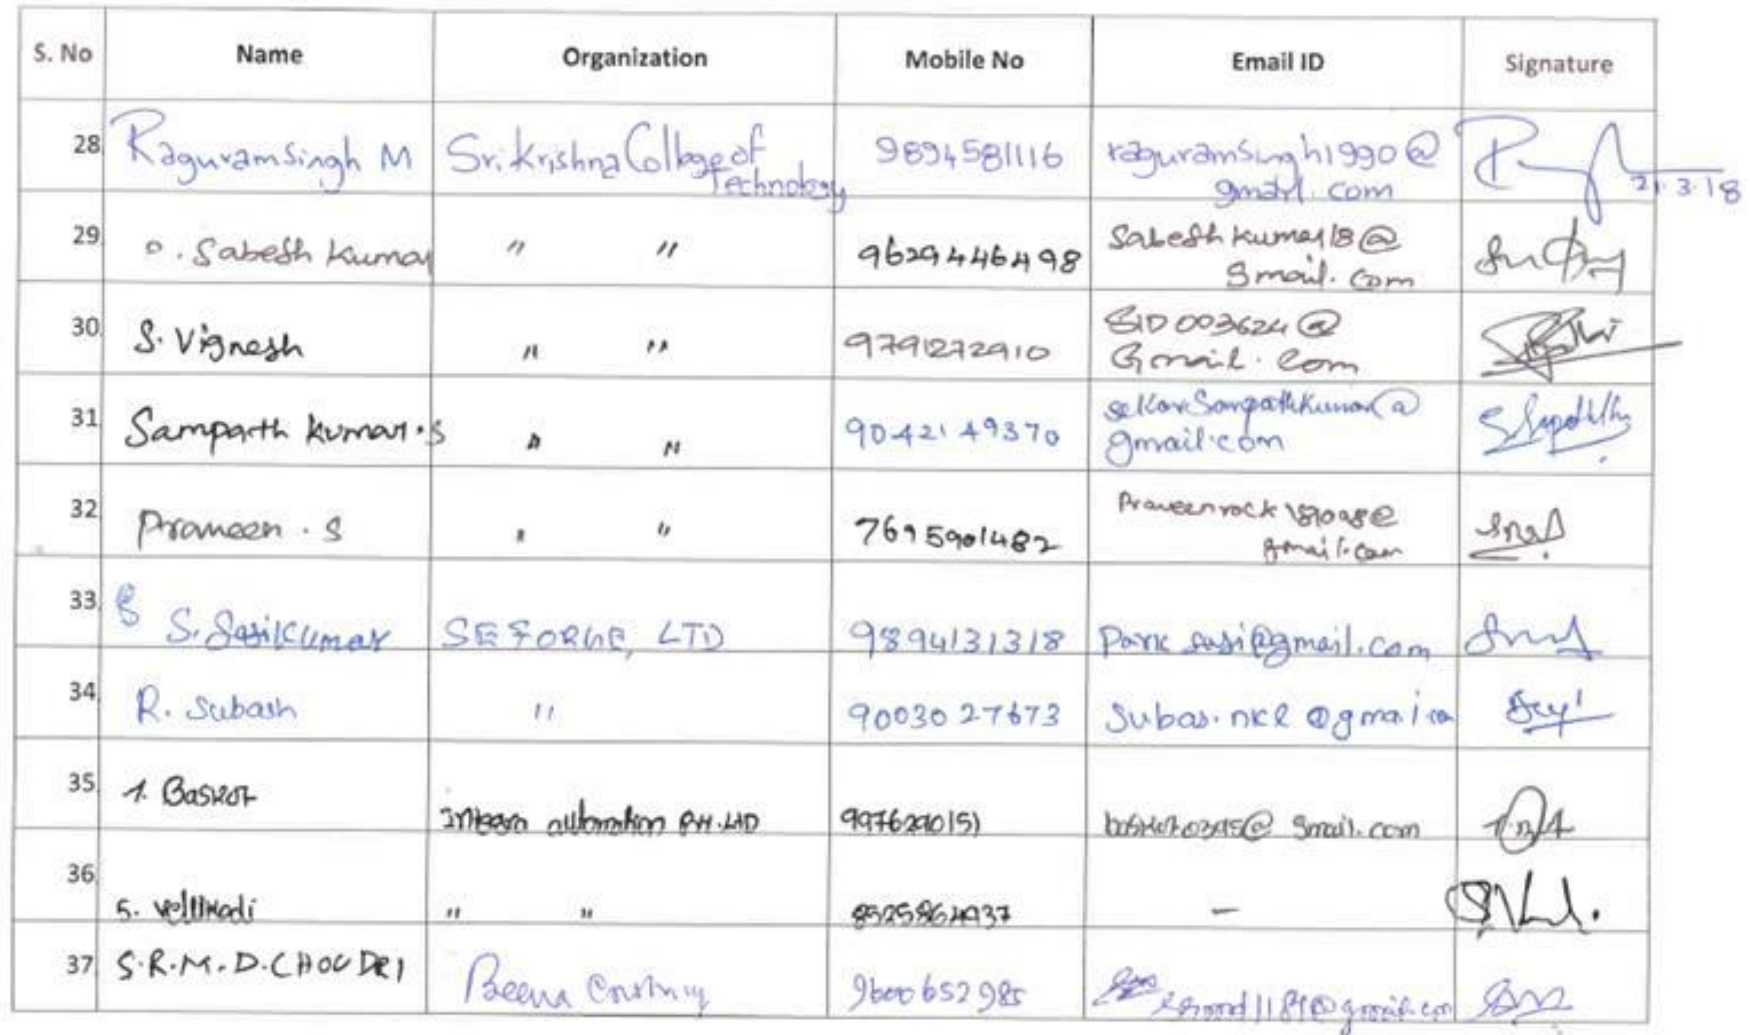 S. No Name Organization Mobile No Email ID Signature
28 Raguramsingh M Sri Krishna College of Technology 9894581116 raguramsingh1990@
gmail.com
21.3.18
29 D. Sabesh Kumar " " 9629446498 Sabeshkumar18@
gmail.com
30 S. Vignesh " " 9791272910 SID003624@
Gmail.com
31 Samparth Kumar.S " " 9042149370 sekarSampathkumar@
gmail.com
32 Praveen . S " " 7695901482
gmail.com
33 S. Sasikumar SE FORGE, LTD 9894131318 park sasi@gmail.com
34 R. Subash " 9003027673 Subas.nkl@gmail
35 1. Baskar automation Pvt.LTD 9976290151 @gmail.com
36 S. " " 8525864937 –
37 S.R.M.D.CHOUDRI Beena 9600652985 @gmail.com